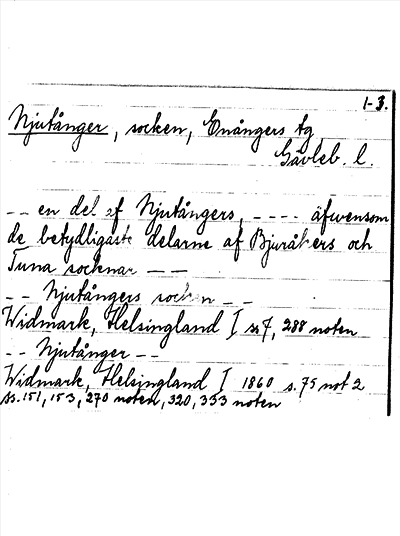 1-3.
Njutånger, socken, Enångers tg
Gävleb. l.
-- en del af Njutångers, ---- äfwensom
de betydligaste delarne af Bjuråkers och
Tuna socknar --
-- Njutångers socken --
Widmark, Helsingland I s. 7, 288 noten
-- Njutånger --
Widmark, Helsingland I 1860 s. 75 not 2
ss. 151, 153, 270 noten, 320, 333 noten